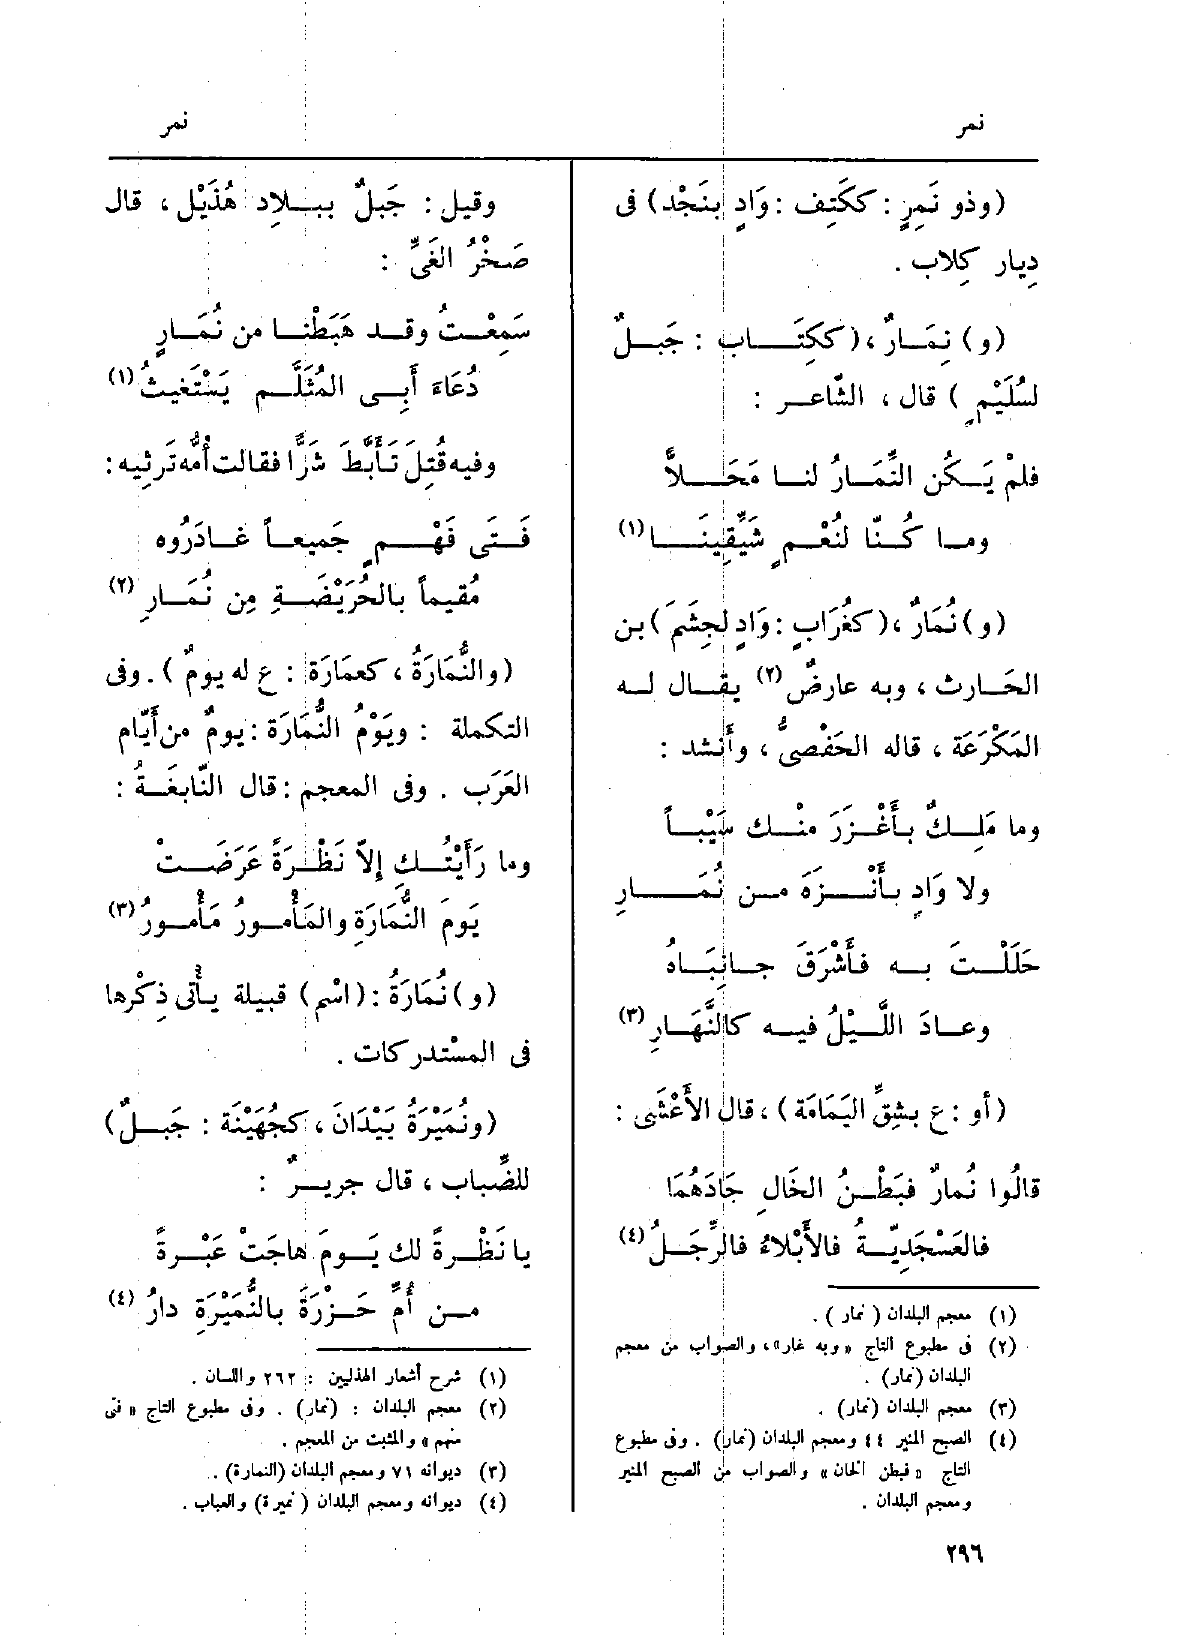 نمر
نمر
(وذو نَمِرٍ : ككَتِف : وَادٍ بنَجْد) فى
دِيار كِلاب .
(و) نِمَارٌ ، (ككِتَاب : جَبلٌ
لسُلَيْمٍ ) قال ، الشّاعر :
فلمْ يَكُن النِّمَارُ لنا مَحَلاًّ
وما كُنّا لنُعْمٍ شَيِّقِينَا (١)
(و) نُمَارٌ ، (كغُرَابٍ : وَادٍ لجِشَمَ ) بن
الحَارث ، وبه عارضٌ (٢) يقال له
المَكْرَعَة ، قاله الحَفْصىُّ ، وأَنشد :
وما مَلِكٌ بأَغْزَرَ منْك سَيْباً
ولا وَادٍ بأَنْزَهَ من نُمَارِ
حَلَلْتَ به فأَشْرَقَ جانِبَاهُ
وعادَ اللَّيْلُ فيه كالنَّهَارِ (٣)
(أو : ع بشِقِّ اليَمَامَة ) ، قال الأَعْشَى :
قالُوا نُمارٌ فبَطْنُ الخَالِ جَادَهُمَا
فالعَسْجَدِيّةُ فالأَبْلاءُ فالرِّجَلُ (٤)
(١) معجم البلدان ( نمار ) .
(٢) فى مطبوع التاج «وبه غار» ، والصواب من معجم
البلدان (نمار) .
(٣) معجم البلدان (نمار) .
(٤) الصبح المنير ٤٤ ومعجم البلدان (نمار) . وفى مطبوع
التاج « فبطن الخان » والصواب من الصبح المنير
ومعجم البلدان .
٢٩٦
وقيل : جَبلٌ ببلادِ هُذَيْل ، قال
صَخْرُ الغَىِّ :
سَمِعْتُ وقد هَبَطْنا من نُمَارٍ
دُعَاءَ أَبى المُثَلَّم يَسْتَغيثُ (١)
وفيه قُتِلَ تَأَبَّطَ شَرًّا فقالت أُمُّه تَرثِيه :
فَتَى فَهْمٍ جَميعاً غادَرُوه
مُقيماً بالحُرَيْضَةِ مِن نُمَارِ (٢)
(والنُّمَارَةُ ، كعمَارَة : ع له يومٌ ) . وفى
التكملة : ويَوْمُ النُّمَارَة : يومٌ من أَيّام
العَرَب . وفى المعجم : قال النّابغَةُ :
وما رَأَيْتُك إِلاّ نَظْرَةً عَرَضَتْ
يَومَ النُّمَارَةِ والمَأْمورُ مَأْمورُ (٣)
(و) نُمَارَةُ : (اسْم) قبيلة يأْتى ذِكْرها
فى المسْتدركات .
(ونُمَيْرَةُ بَيْدَانَ ، كجُهَيْنَة : جَبلٌ)
للضِّباب ، قال جريرٌ :
يا نَظْرةً لك يَومَ هاجَتْ عَبْرةً
من أُمِّ حَزْرَةَ بالنُّمَيْرَةِ دارُ (٤)
(١) شرح أشعار الهذليين : ٢٦٢ واللسان .
(٢) معجم البلدان : (نمار) . وفى مطبوع التاج « فتى
منهم » والمثبت من المعجم .
(٣) ديوانه ٧١ ومعجم البلدان (النمارة) .
(٤) ديوانه ومعجم البلدان ( نميرة) والعباب .